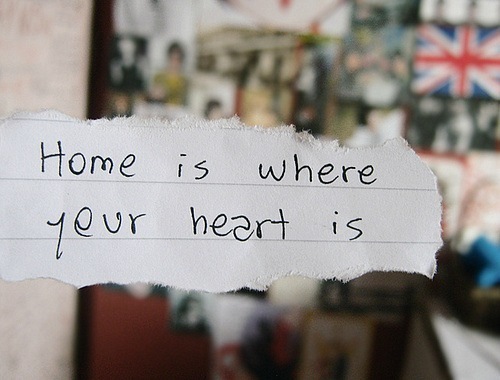 Home is where
your heart is